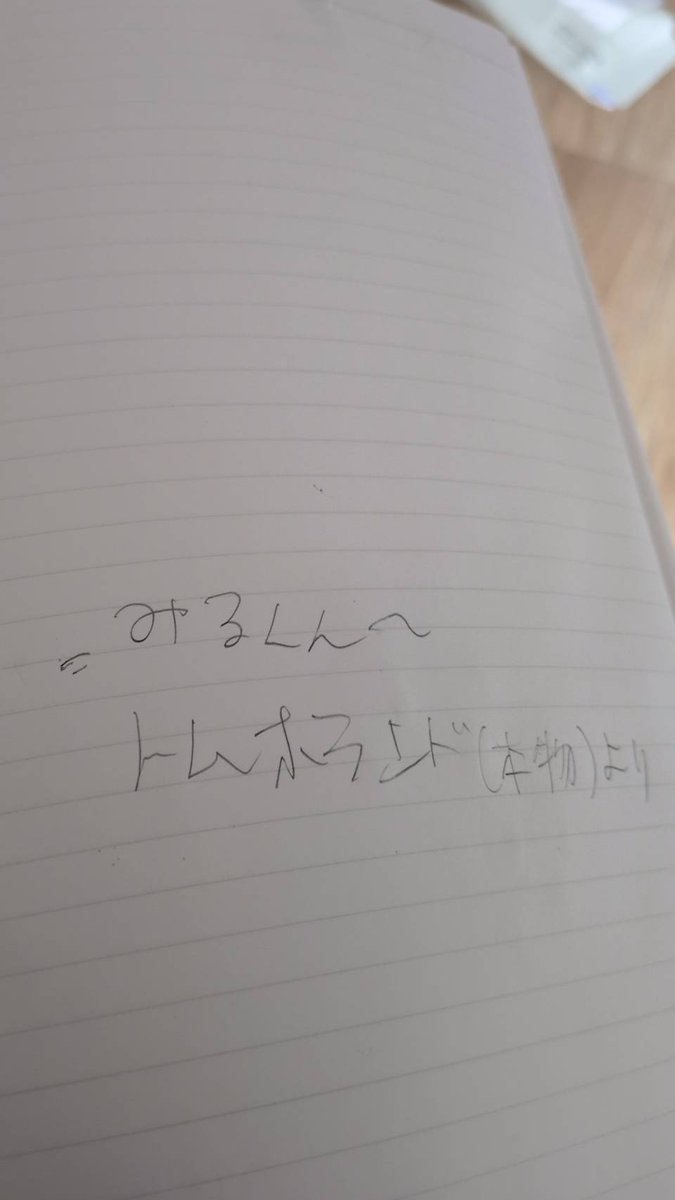 みるくんへ
トムホランド(本物)より